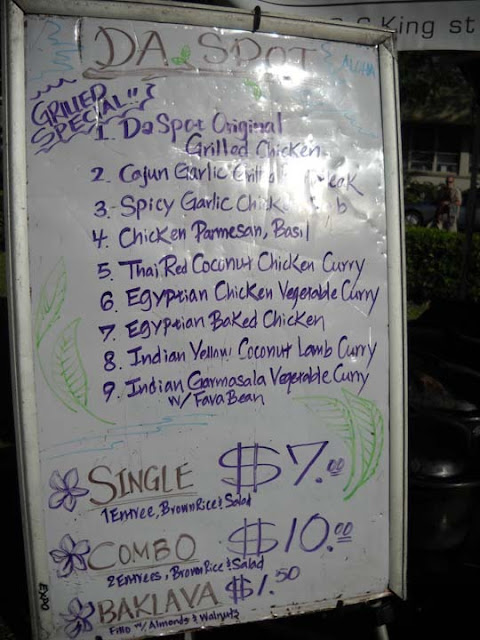 King st
DA SPOT
ALOHA
GRILLED
SPECIAL!!
1. Da Spot Original
Grilled Chicken
2. Cajun Garlic
3. Spicy Garlic
4. Chicken Parmesan, Basil
5. Thai Red Coconut Chicken Curry
6. Egyptian Chicken Vegetable Curry
7. Egyptian Baked Chicken
8. Indian Yellow Coconut Lamb Curry
9. Indian Garmasala Vegetable Curry
w/ Fava Bean
SINGLE $7.00
1 Entree, Brown Rice & Salad
COMBO $10.00
2 Entrees, Brown Rice & Salad
BAKLAVA $1.50
Fillo w/ Almonds & Walnuts
EXPO